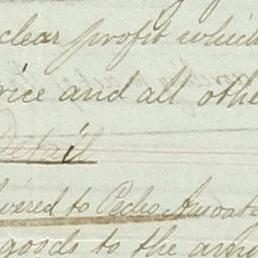 clear profit which
rice and all othe
Detail
vered to Pedro
goods to the amo